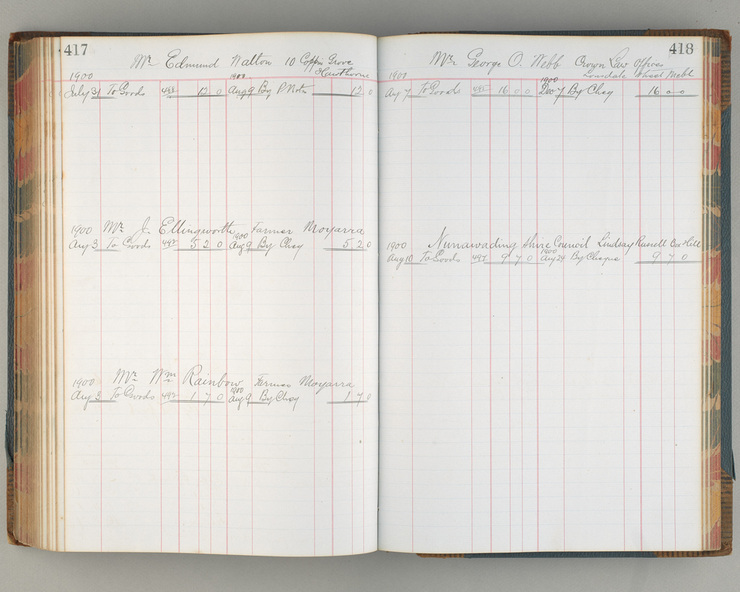 417
Mr Edmund Walton 10 Coppin Grove
Hawthorne
1900 1900
July 31 To Goods 488 12 0 Aug 9 By P Note 12 0
1900 Mr J. Ellingworth Farmer Moyarra
1900
Aug 3 To Goods 492 5 2 0 Aug 9 By Chq 5 2 0
1900 Mr Wm Rainbow Farmer Moyarra
1900
Aug 3 To Goods 492 1 7 0 Aug 9 By Chq 1 7 0
418
Mr George O. Webb Crown Law Offices
Lonsdale Street Melb
1900 1900
Aug 7 To Goods 16 0 0 Dec 7 By Chq 16 0 0
1900 Nunawading Shire Council Lindsay Russell Box Hill
1900
Aug 10 To Goods 495 9 7 0 Aug 24 By Cheque 9 7 0